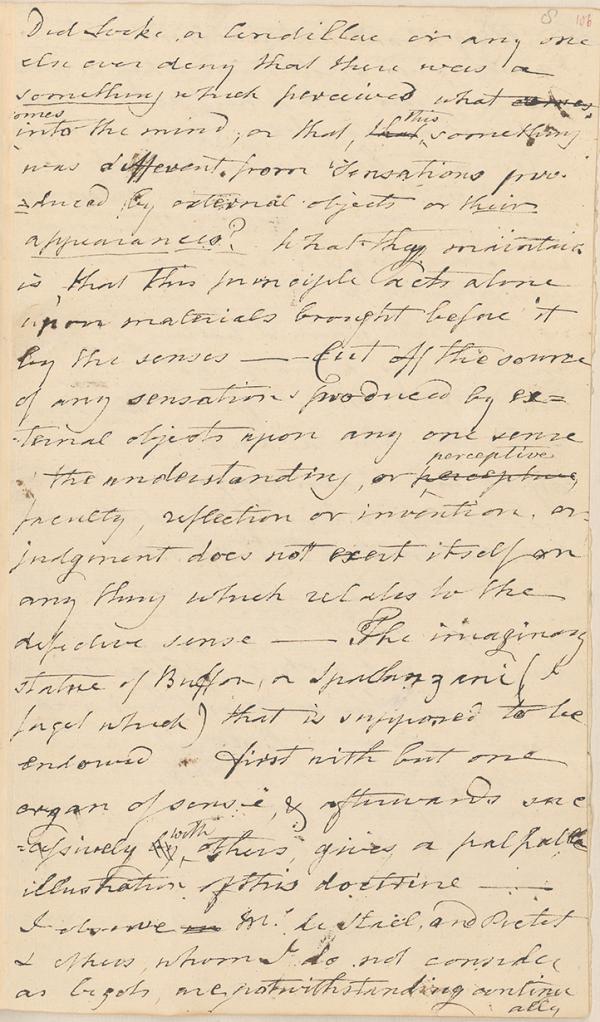 8 106
Did Locke, or Condillac or any one
else ever deny that there was a
something which perceived what comes
omes
into the mind, or that, that this something
was different from Sensations pro-
=duced by external objects or their
appearances? What they maintain
is that this principle acts alone
upon materials brought before it
by the senses — Cut off the source
of any sensations produced by ex=
ternal objects upon any one sense
the understanding, or perceptive
faculty, reflection or invention, or
judgment does not exert itself on
any thing which relates to the
defective sense — The imaginary
statue of Buffon, or Spallanzani (I
forget which) that is supposed to be
endowed first with but one
organ of sense, & afterwards suc
=cessively by with others, gives a palpable
illustration of this doctrine —
I observe M. de Stael, and Pictet
& others, whom I do not consider
as bigots, are notwithstanding continu
ally